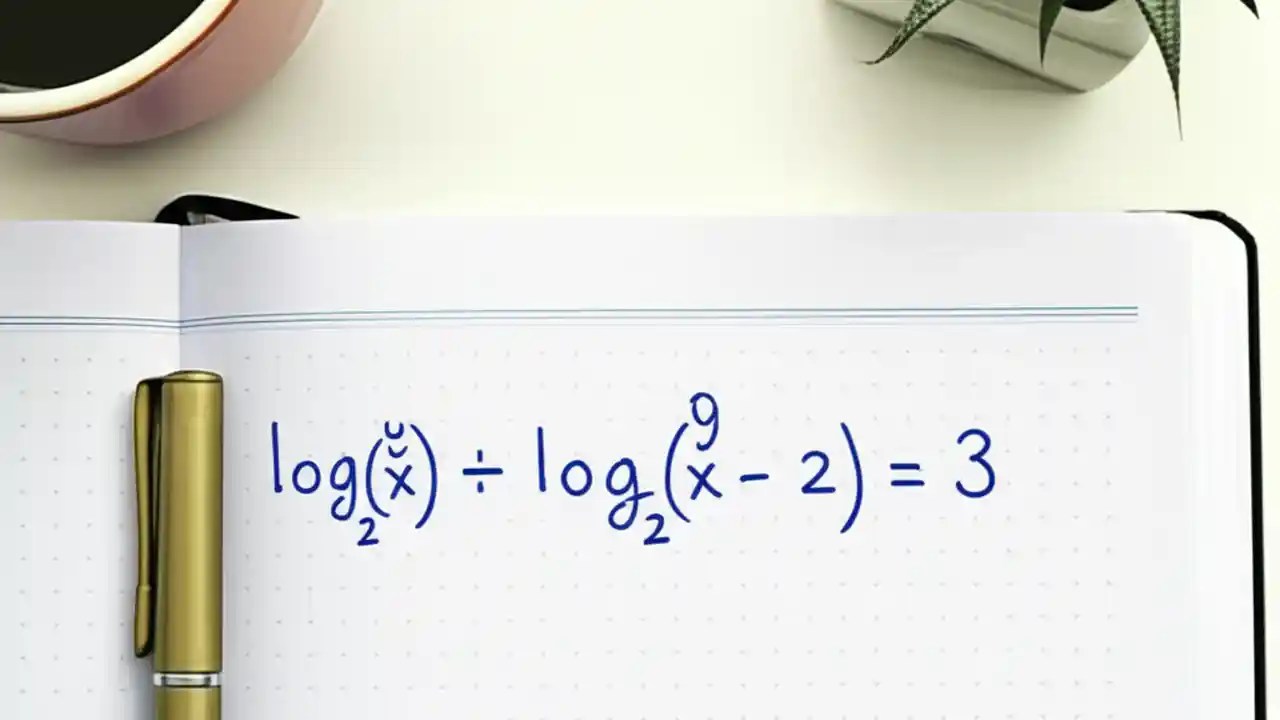 log₂(x) ÷ log₂(x - 2) = 3